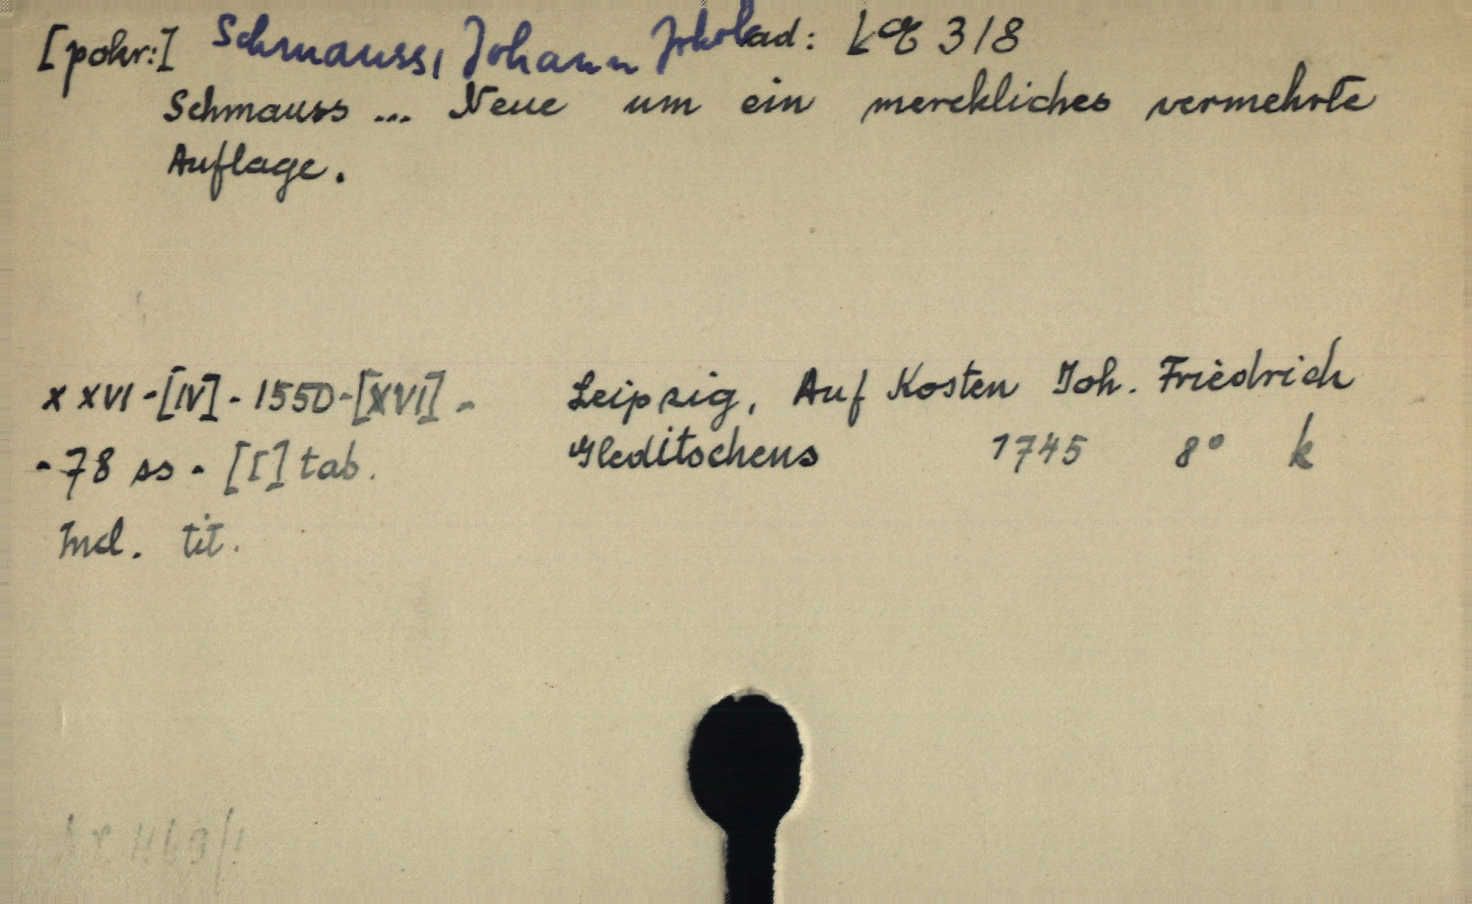 [pokr:] Schmauss, Johann Jokob ad: LE 318
Schmauss ... Neue um ein merckliches vermehrte
Auflage.
XXVI-[IV]-1550-[XVI]-
-78 ss-[I] tab.
Ind. tit.
Leipzig, Auf Kosten Joh. Friedrich
Gleditschens 1745 8° k